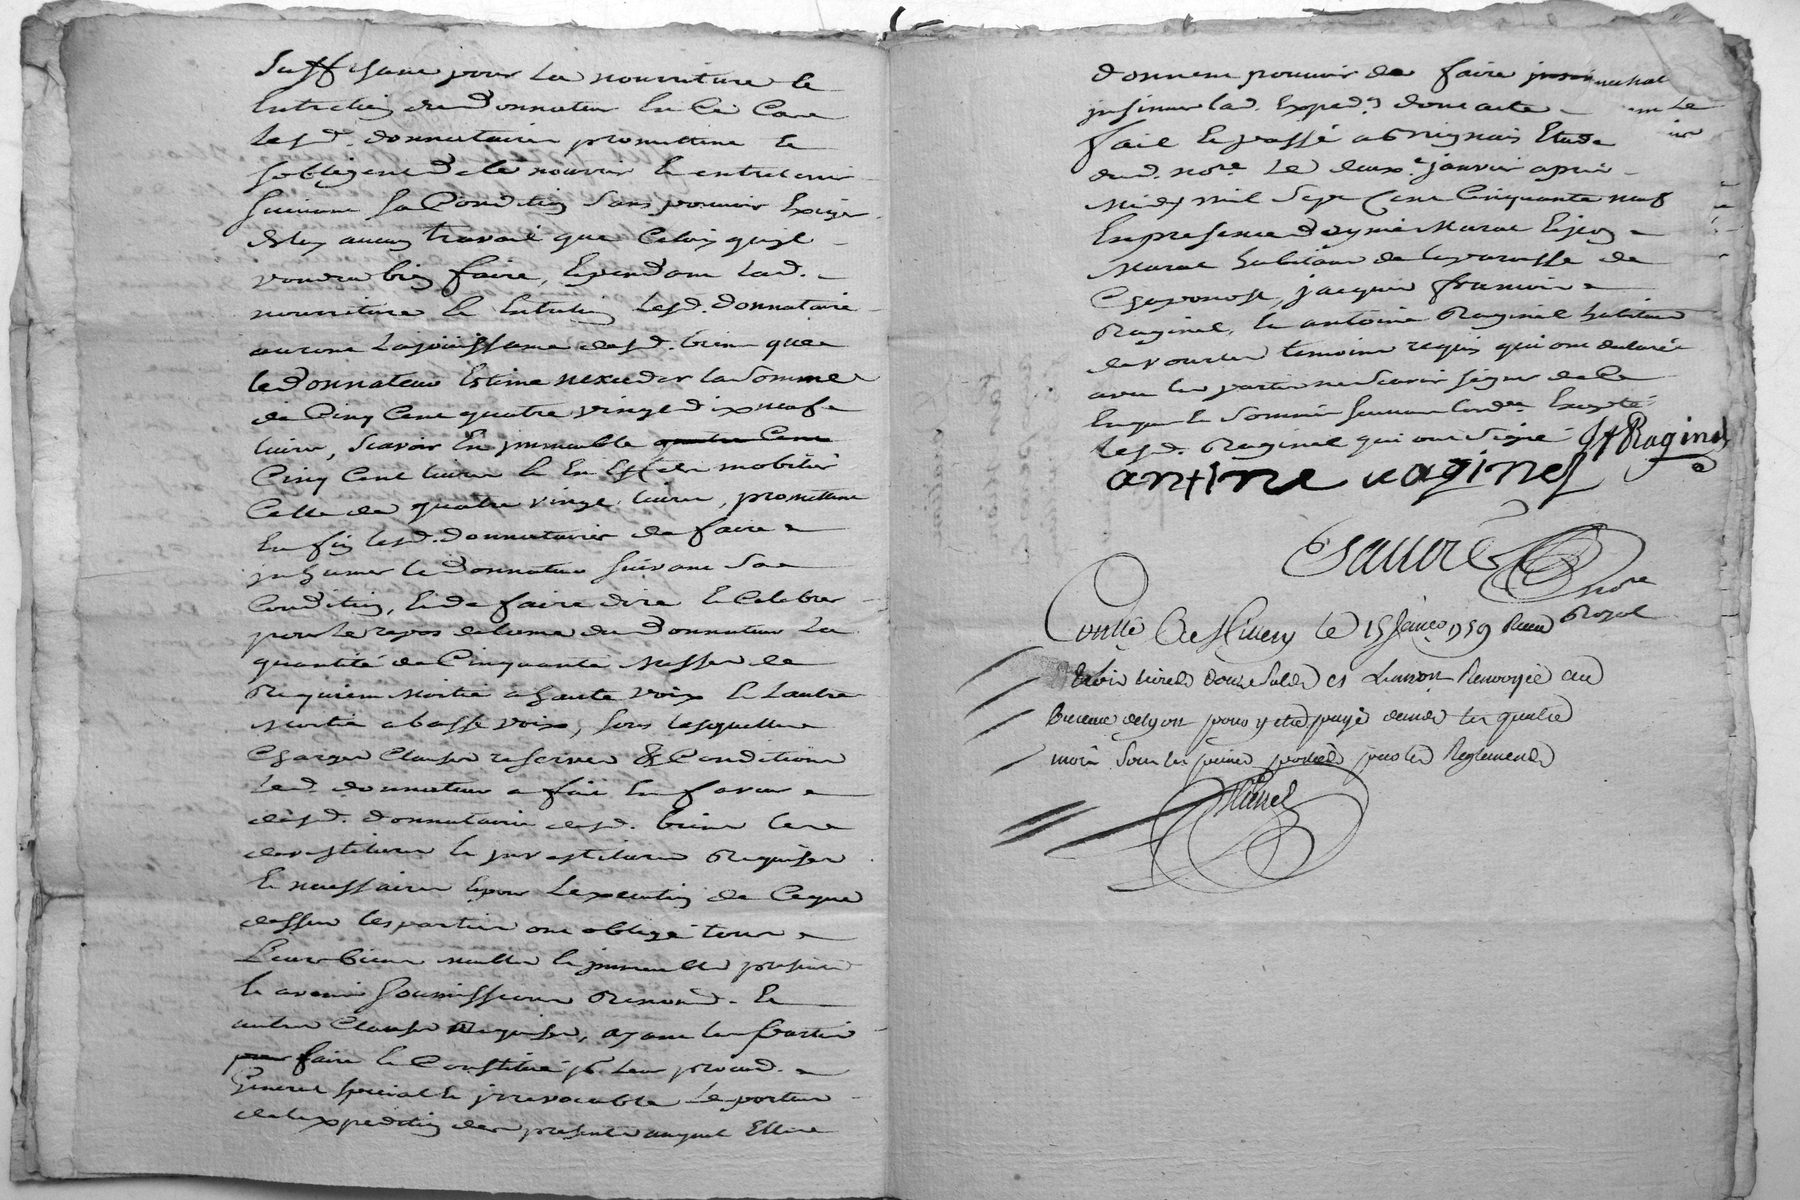 Suffisans pour la nourriture et
Entretien dud. donnateur En Ce Cas
lesd. donnataires promettent Et
sobligent de le nourrir Et entretenir
suivant sa Condition sans pouvoir Exiger
de luy aucun travail que Celuy quil
voudra bien faire, Et pendant lad.
nourriture Et Entretien lesd. donnataires
auront la jouissance desd. biens que
le donnateur Estime nexceder la somme
de Cinq Cent quatre vingt dix neuf
livres, scavoir En immeuble quatre Cent
Cinq Cent livres Et En Effets mobiliers
Celle de quatre vingt livres, promettent
En fin lesd. donnataires de faire
inhumer le donnateur suivant sa
Condition, Et de faire dire Et Celebrer
pour le repos de lame du donnateur la
quantité de Cinquante Messes de
Requiem Moitié a haute voix Et Lautre
Moitié a basse voix, sous lesquelles
Charges Clauses reserves & Conditions
led. donnateur a fait En faveur
desd. donnataires desd. biens les
devestitures Et investitures Requises
Et necessaires Et pour Lexecution de Ceque
dessus les parties ont obligé tous
Leurs biens meubles Et immeubles presents
Et avenir soumissions Renond. Et
autres Clauses Requises, ayant les parties
pour faire Et Constitué pr. leur procurd.
General special Et irrevocable le porteur
de lexpedition des presentes auquel Elles
donnent pouvoir de faire
insinuer lad. Expedon dont acte
fait Et passé a Brignais Etude
dud. nore. Le deux.e janvier apres
Midy mil Sept Cent Cinquante neuf
En presence deymé Murat Et jean
Murat habitans de la paroisse de
Chaponost, jacques francois
Raginel, Et antoine Raginel habitans
de vourles temoins requis qui ont declaré
avec les parties ne scavoir signer de Ce
Enquis Et sommés suivant lord.ce Excepté
lesd. Raginel qui ont signé J f Raginel
antine raginel
Sauvre
nore
Royal
Conllé A St Genis le 15 Janvr 1759 Receu
trois livres douze sols et Linsinon Renvoyée au
Bureau de lyon pour y etre payé dans les quatre
mois sous les peines portées par les Reglements